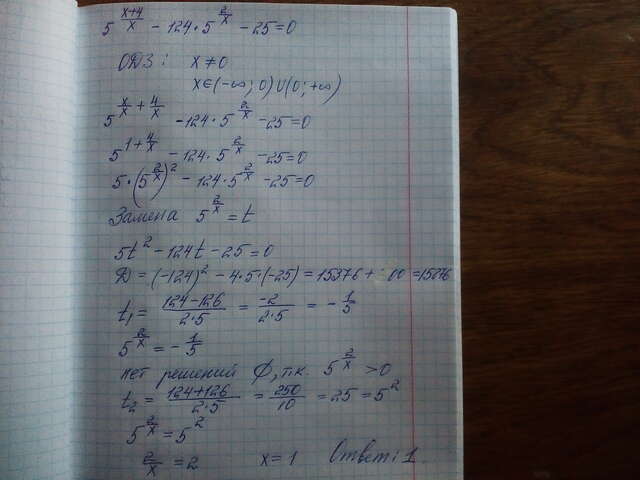 5^((x+4)/x) - 124·5^(2/x) - 25=0
ОДЗ: x≠0
x∈(-∞; 0)∪(0; +∞)
5^(x/x + 4/x) - 124·5^(2/x) - 25=0
5^(1+4/x) - 124·5^(2/x) - 25=0
5·(5^(2/x))^2 - 124·5^(2/x) - 25=0
Замена 5^(2/x) = t
5t^2 - 124t - 25=0
D = (-124)^2 - 4·5·(-25) = 15376 + 00 = 15876
t1 = (124-126)/(2·5) = -2/(2·5) = -1/5
5^(2/x) = -1/5
нет решений ∅, т.к. 5^(2/x) >0
t2 = (124+126)/(2·5) = 250/10 = 25 = 5^2
5^(2/x) = 5^2
2/x = 2 x=1 Ответ: 1